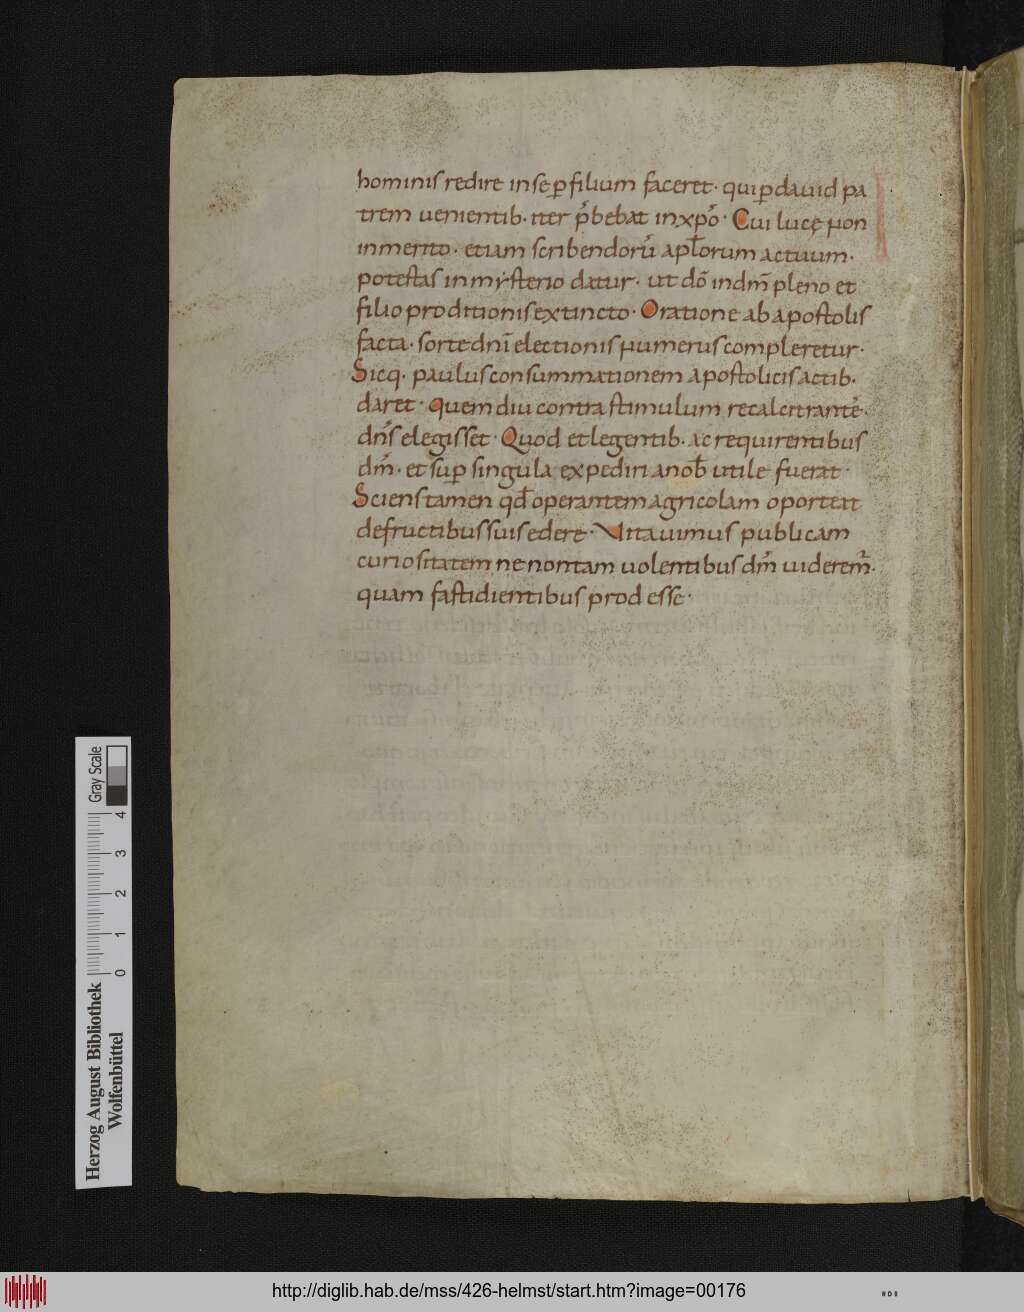 hominis redire in se ꝑ filium faceret · qui ꝑ dauid pa
trem uenientib · iter p̄bebat in xp̄o · Cui lucę non
inmerito · etiam scribendorū apl̄orum actuum ·
potestas in mẏsterio datur · ut dō in dm̄ pleno et
filio proditionis extincto · Oratione ab apostolis
facta · sorte dnī electionis numerus compleretur ·
Sicq · paulus consummationem apostolicis actib ·
daret · quem diu contra stimulum recalcitrantē ·
dn̄s elegisset · Quod et legentib · ac requirentibus
dm̄ · et suꝑ singula expediri a nob̄ utile fuerat ·
Sciens tamen qd̄ operantem agricolam oporteat
de fructibus suis edere · Uitauimus publicam
curiositatem ne non tam uolentibus dm̄ uiderem̄ ·
quam fastidientibus prod esse ·
Gray Scale
4
3
2
1
0
Herzog August Bibliothek
Wolfenbüttel
http://diglib.hab.de/mss/426-helmst/start.htm?image=00176